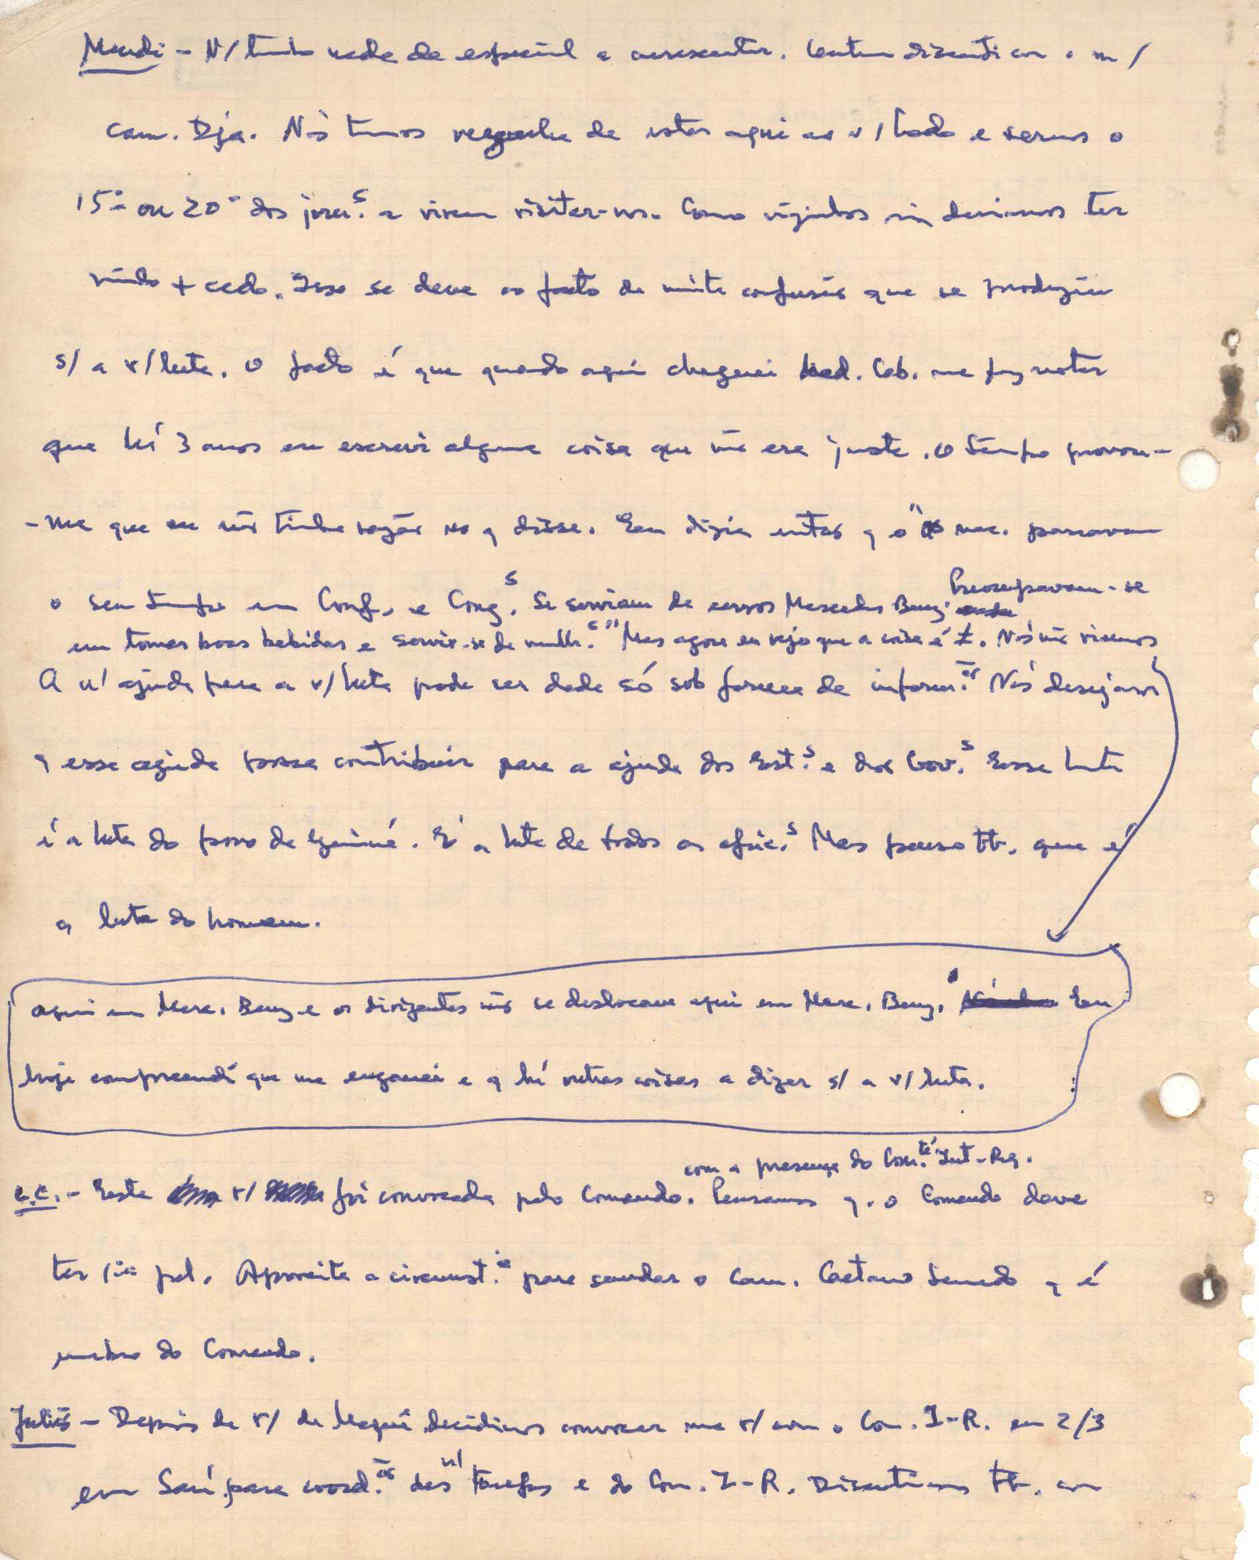 Mendi - N/ tenho nada de especial a acrescentar. Contudo discuti com o m/
cam. Dja. Nós temos vergonha de estar aqui ao v/ lado e sermos o
15º ou 20º dos jorn.s a virem visitar-vos. Como vizinhos nós deviamos ter
vindo + cedo. Isso se deve ao facto da muita confusão que se produziu
s/ a v/ luta. O facto é que quando aqui cheguei Med. Cab. me fez notar
que há 3 anos eu escrevi alguma coisa que não era justa. O tempo provou-
-me que eu não tinha razão no q disse. Eu dizia então q "os nac. passavam
o seu tempo em Conf. e Cong.s. Se serviam de carros Mercedes Benz. Preocupavam-se
em tomar boas bebidas e servir-se de mulh.s" Mas agora eu vejo que a coisa é ≠. Nós não viemos
A n/ ajuda para a v/ luta pode ser dada só sob forma de inform.ão Nós desejamos
q essa ajuda possa contribuir para a ajuda dos Est.s e dos Gov.s Essa luta
é a luta do povo da Guiné. É a luta de todos os afric.s Mas penso tb. que é
a luta do homem.
aqui em Merc. Benz e os dirigentes não se deslocam aqui em Merc. Benz. Eu
hoje compreendi que me enganei e q há outras coisas a dizer s/ a v/ luta.
com a presença do Com.té Int-Reg.
C.C. - Esta r/ foi convocada pelo Comando. Pensamos q. o Comando deve
ter 1ª pal. Aproveita a circunst.ia para saudar o Cam. Caetano Semedo q é
membro do Comando.
Julião - Depois da r/ de Maqué decidimos convocar uma r/ com o Com. I-R. em 2/3
em Sará para coord.ão das n/ tarefas e do Com. I-R. Discutimos tb. com